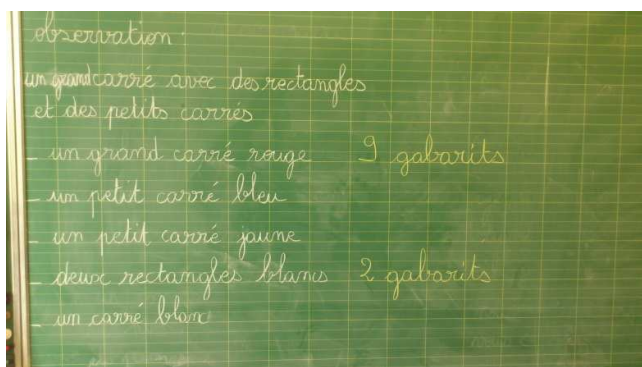 observation:
un grand carré avec des rectangles
et des petits carrés
_ un grand carré rouge 9 gabarits
_ un petit carré bleu
_ un petit carré jaune
_ deux rectangles blancs 2 gabarits
_ un carré blanc